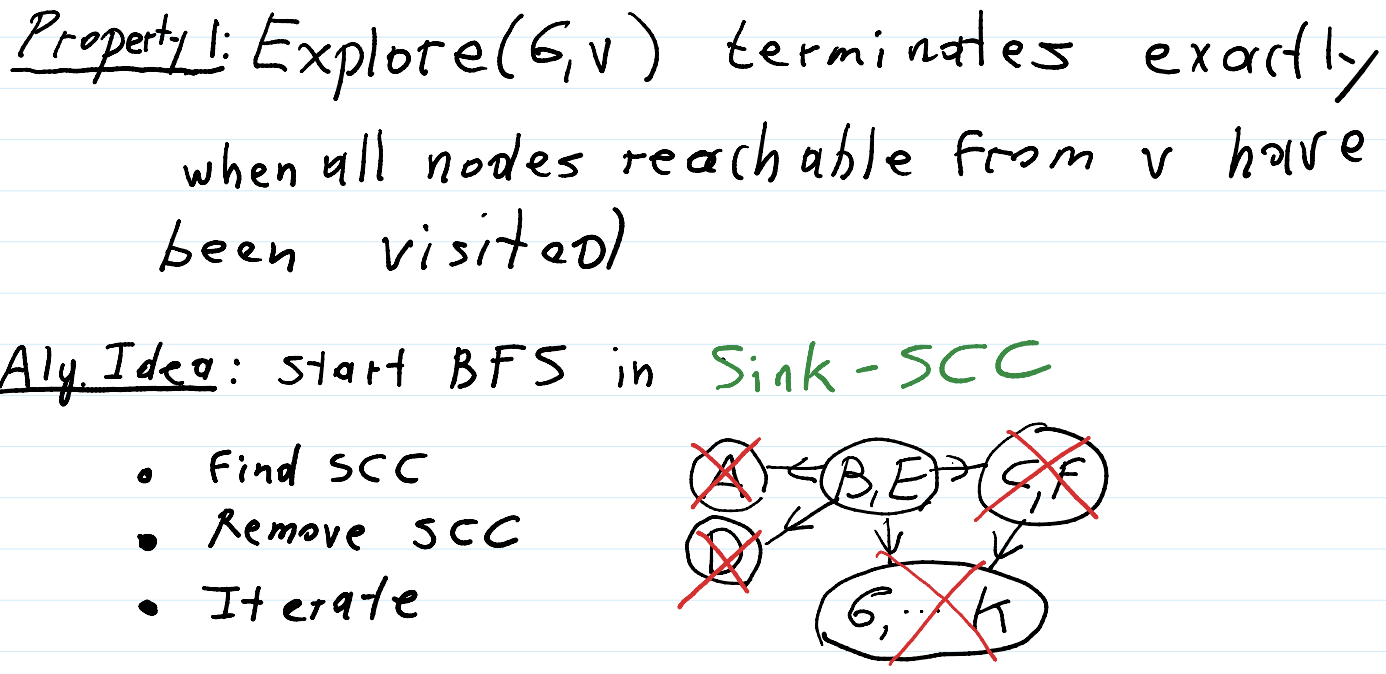 Property 1: Explore(G,v) terminates exactly
when all nodes reachable from v have
been visited
Alg. Idea: start BFS in Sink-SCC
• Find SCC
• Remove SCC
• Iterate
A
B,E
C,F
D
G,... K